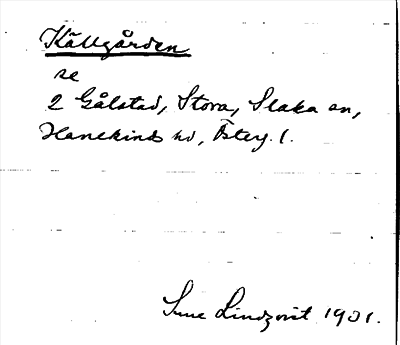 Källgården
se
2 Gålstad, Stora, Slaka sn,
Hanekinds hd, Österg. l.
Sune Lindqvist 1931.